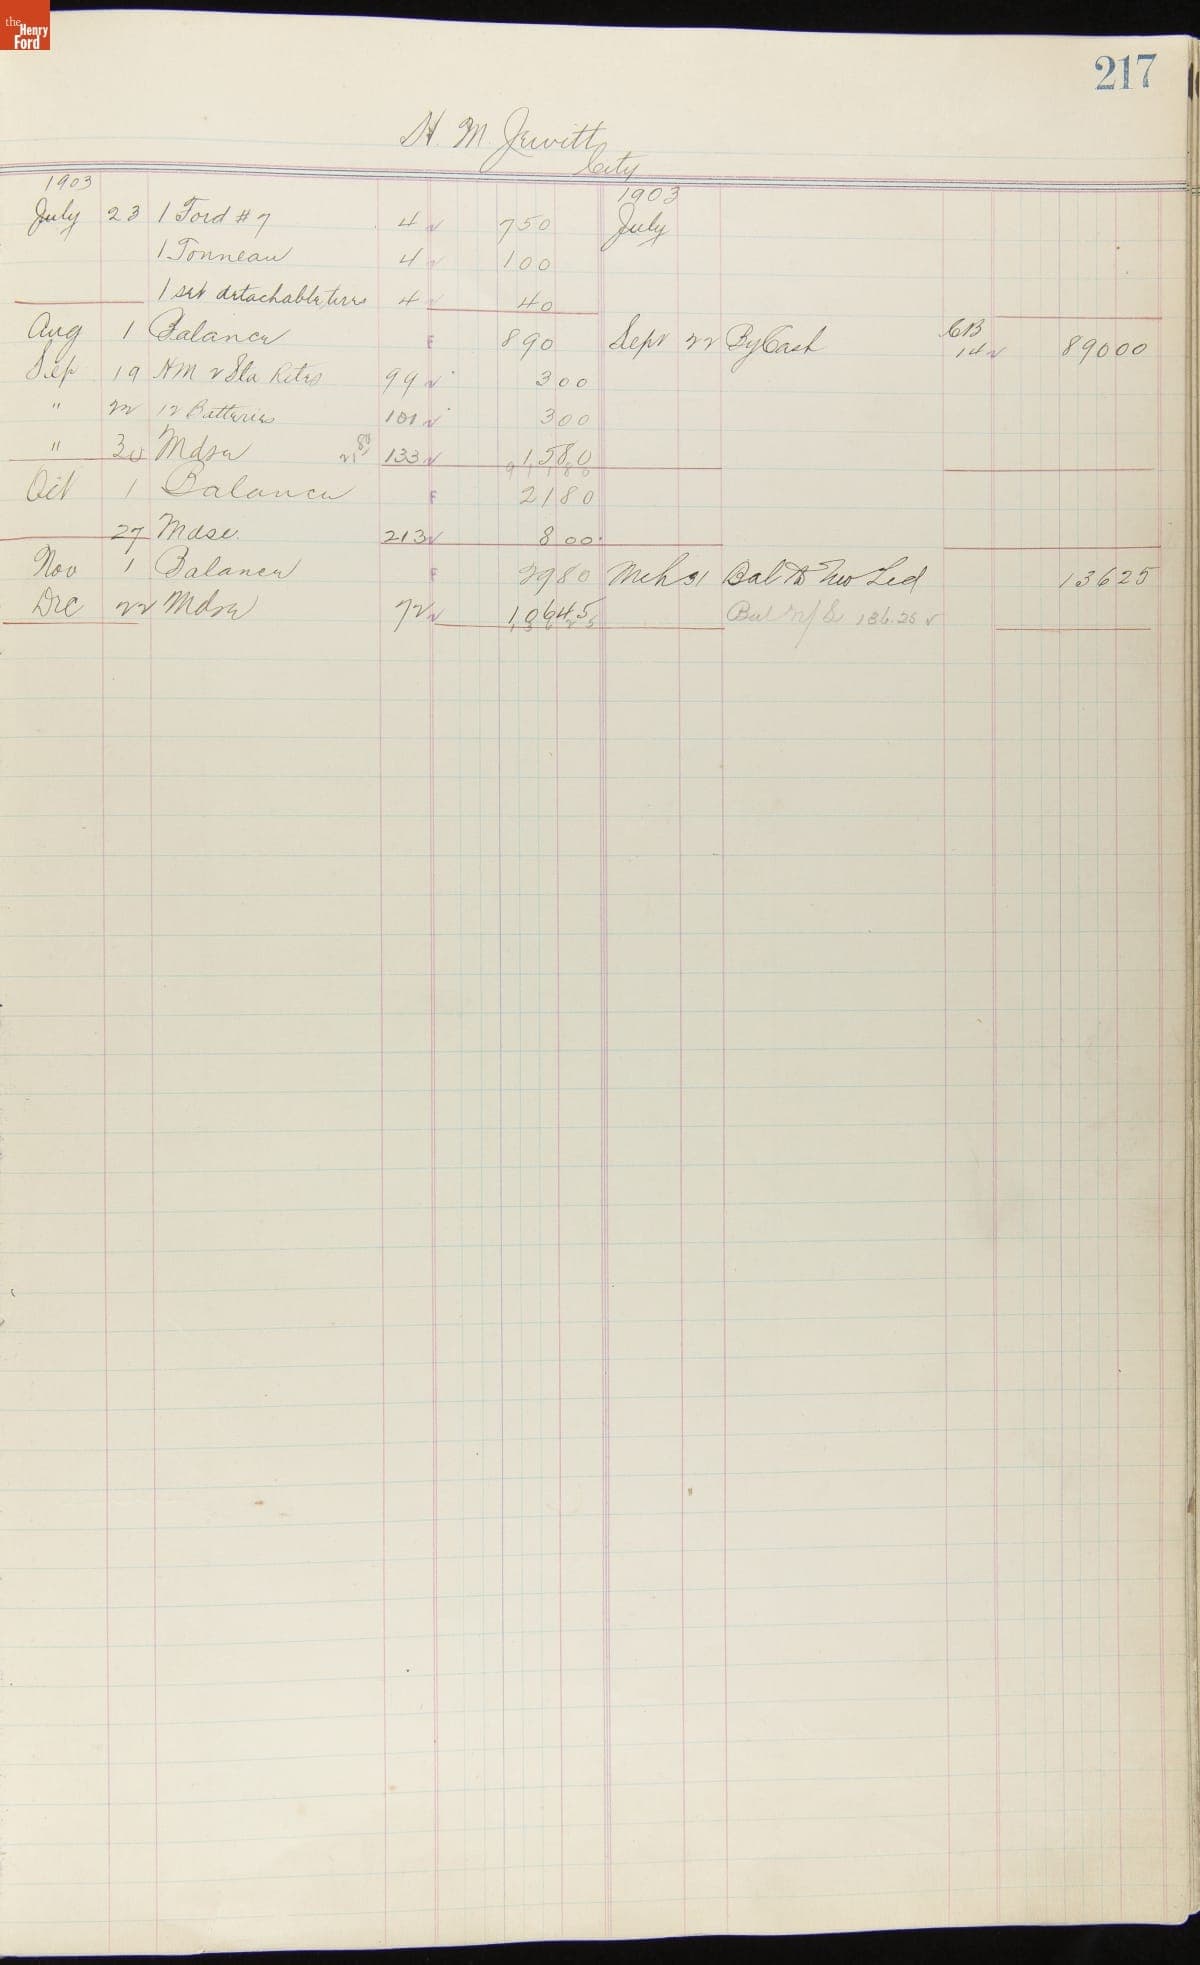 the Henry Ford
217
H. M. Jewitt
City
1903 1903
July 23 1 Ford # 7 4 750 July
1 Tonneau 4 100
1 set detachable tires 4 40
Aug 1 Balance F 890 Sept 22 By Cash CB 14 890 00
Sep 19 99 3 00
" 22 12 Batteries 101 3 00
" 30 Mdse 21 80 133 15 80
911 80
Oct 1 Balance F 21 80
27 Mdse. 213 8 00
Nov 1 Balance F 29 80 Mch 31 Bal to New Led 136 25
Dec 22 Mdse 72 106 45 Bal 136.25
136 25